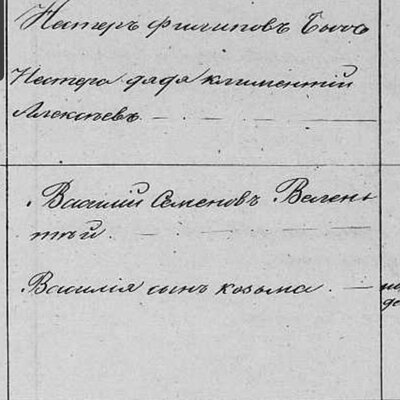 Нестеръ филиповъ
Нестера дядя климентій
Алексѣевъ
Василій Семеновъ Велень
тѣй
Василія сынъ козьма